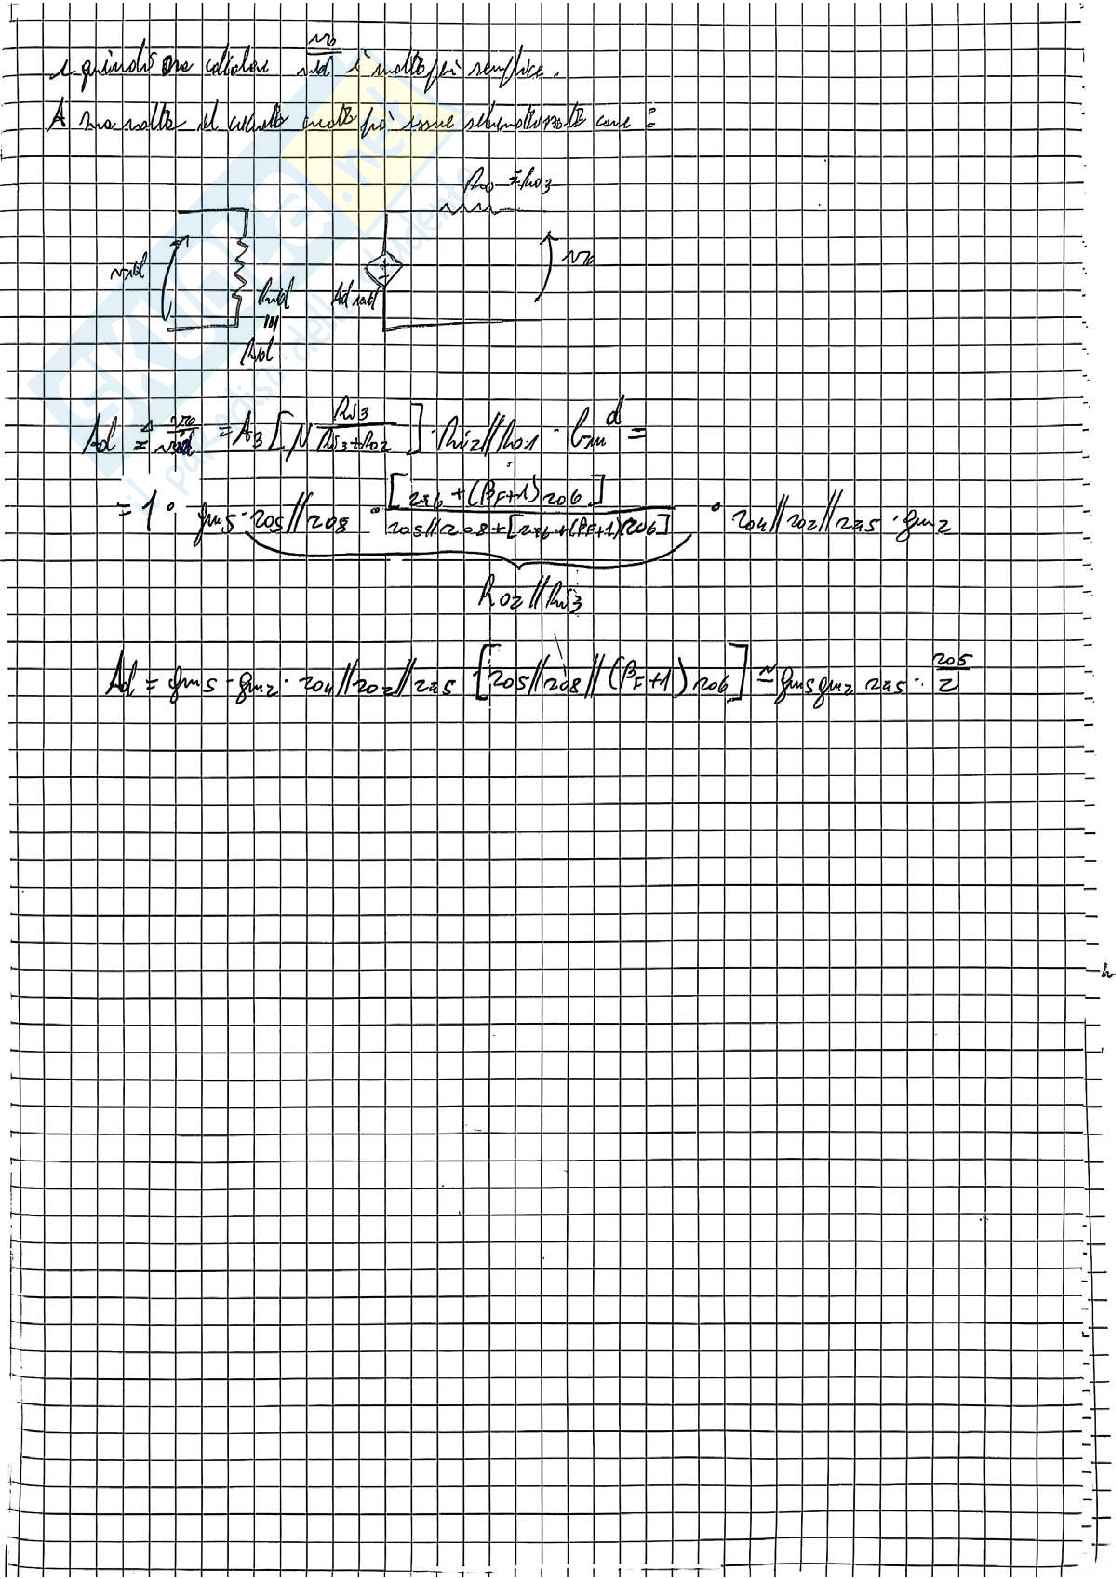 e quindi ora calcolare vo/vid è molto più semplice.
A sua volta il circuito può essere schematizzato come :
Ro ≅ Ro3
vid
Rid
Rid
Ad vid
vo
Ad ≜ vo/vid = A3 [μ Ri3/(Ri3+Ro2)] · Ri2//Ro1 · Gm^d =
= 1 · gm5 · ro5//ro8 · [rπ6+(βF+1)ro6]/(ro5//ro8+[rπ6+(βF+1)ro6]) · ro4//ro2//rπ5 · gm2
Ro2//Ri3
Ad = gm5 · gm2 · ro4//ro2//rπ5 [ro5//ro8//(βF+1)ro6] ≅ gm5 gm2 rπ5 · ro5/2